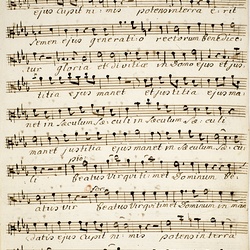 ejus Cupit ni mis potens in terra e rit
Semen ejus generatio rectorum benedice
tur gloria et divitiæ in Domo ejus et jus
titia ejus manet et justitia ejus ma
net in Sæculum Sæ culi in Sæculum Sæ culi
manet justitia ejus manet in Sæculum Sæ cu
li beatus Vir qui ti met Dominum be
atus vir beatus Vir qui timet Dominum in man
datis ejus Cupit ni mis potens in terra